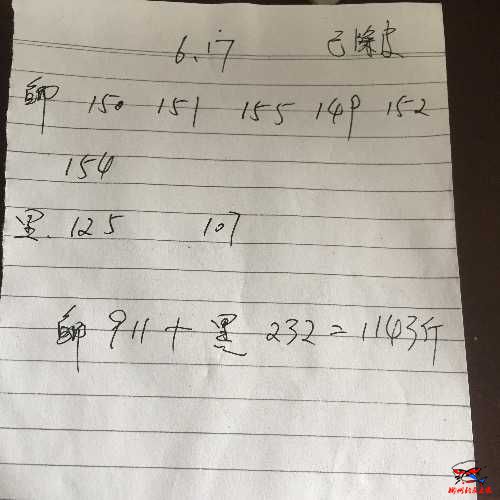 6.17 已除皮
150 151 155 149 152
154
里. 125 107
911 + 黑 232 = 1143斤